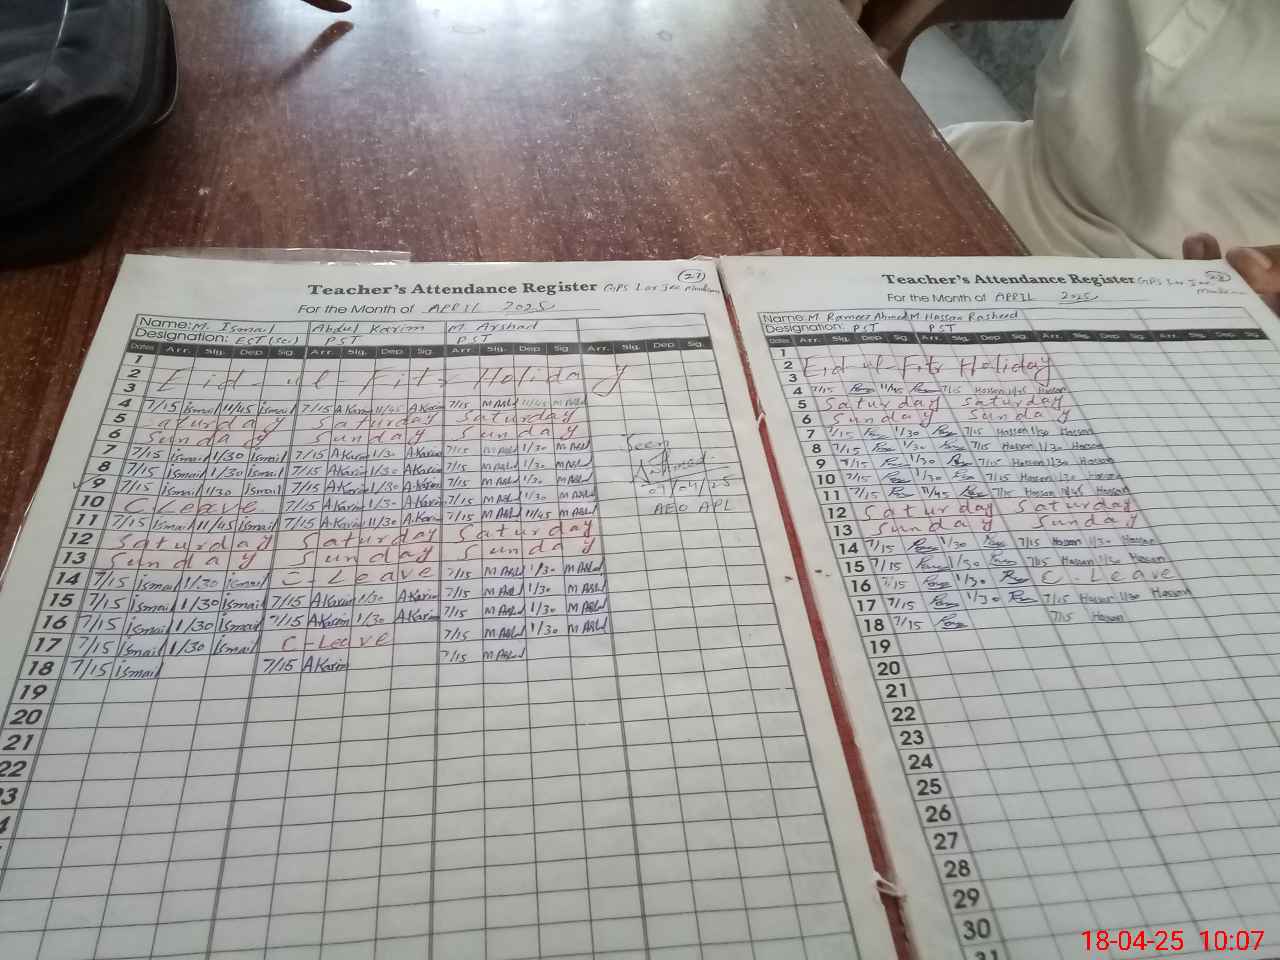 (27)
Teacher's Attendance Register GPS Lar Jee
For the Month of APRIL 2025
Name: M. Ismail Abdul Karim M Arshad
Designation: EST (Sci) PST PST
Dates Arr. Sig. Dep Sig. Arr. Sig. Dep Sig. Arr. Sig. Dep Sig. Arr. Sig. Dep Sig.
1
2 Eid-ul-Fitr Holiday
3
4 7/15 ismail 11/45 ismail 7/15 AKarim 11/45 AKarim 7/15 MArshd 11/45 MArshd
5 aturday Saturday Saturday
6 Sunday Sunday Sunday
7 7/15 ismail 1/30 ismail 7/15 AKarim 1/30 AKarim 7/15 MArshd 1/30 MArshd
8 7/15 ismail 1/30 ismail 7/15 AKarim 1/30 AKarim 7/15 MArshd 1/30 MArshd
9 7/15 ismail 1/30 ismail 7/15 AKarim 1/30 AKarim 7/15 MArshd 1/30 MArshd
10 C.Leave 7/15 AKarim 1/30 AKarim 7/15 MArshd 1/30 MArshd
11 7/15 ismail 11/45 ismail 7/15 AKarim 11/30 AKarim 7/15 MArshd 11/45 MArshd
12 Saturday Saturday Saturday
13 Sunday Sunday Sunday
14 7/15 ismail 1/30 ismail C-Leave 7/15 MArshd 1/30 MArshd
15 7/15 ismail 1/30 ismail 7/15 AKarim 1/30 AKarim 7/15 MArshd 1/30 MArshd
16 7/15 ismail 1/30 ismail 7/15 AKarim 1/30 AKarim 7/15 MArshd 1/30 MArshd
17 7/15 ismail 1/30 ismail C-Leave 7/15 MArshd 1/30 MArshd
18 7/15 ismail 7/15 AKarim 7/15 MArshd
19
20
21
22
3
4
Seen
09/04/25
AEO APL
(28)
Teacher's Attendance Register GPS Lar Jee
For the Month of APRIL 2025
Name: M. Rameez Ahmed M Hassan Rasheed
Designation: PST PST
Dates Arr. Sig. Dep Sig. Arr. Sig. Dep Sig. Arr. Sig. Dep Sig. Arr. Sig. Dep Sig.
1
2 Eid-ul-Fitr Holiday
3
4 7/15 11/45 7/15 Hassan 11/45 Hassan
5 Saturday Saturday
6 Sunday Sunday
7 7/15 1/30 7/15 Hassan 1/30 Hassan
8 7/15 1/30 7/15 Hassan 1/30 Hassan
9 7/15 1/30 7/15 Hassan 1/30 Hassan
10 7/15 1/30 7/15 Hassan 1/30 Hassan
11 7/15 11/45 7/15 Hassan 11/45 Hassan
12 Saturday Saturday
13 Sunday Sunday
14 7/15 1/30 7/15 Hassan 1/30 Hassan
15 7/15 1/30 7/15 Hassan 1/30 Hassan
16 7/15 1/30 C-Leave
17 7/15 1/30 7/15 Hassan 1/30 Hassan
18 7/15 7/15 Hassan
19
20
21
22
23
24
25
26
27
28
29
30
31
18-04-25 10:07